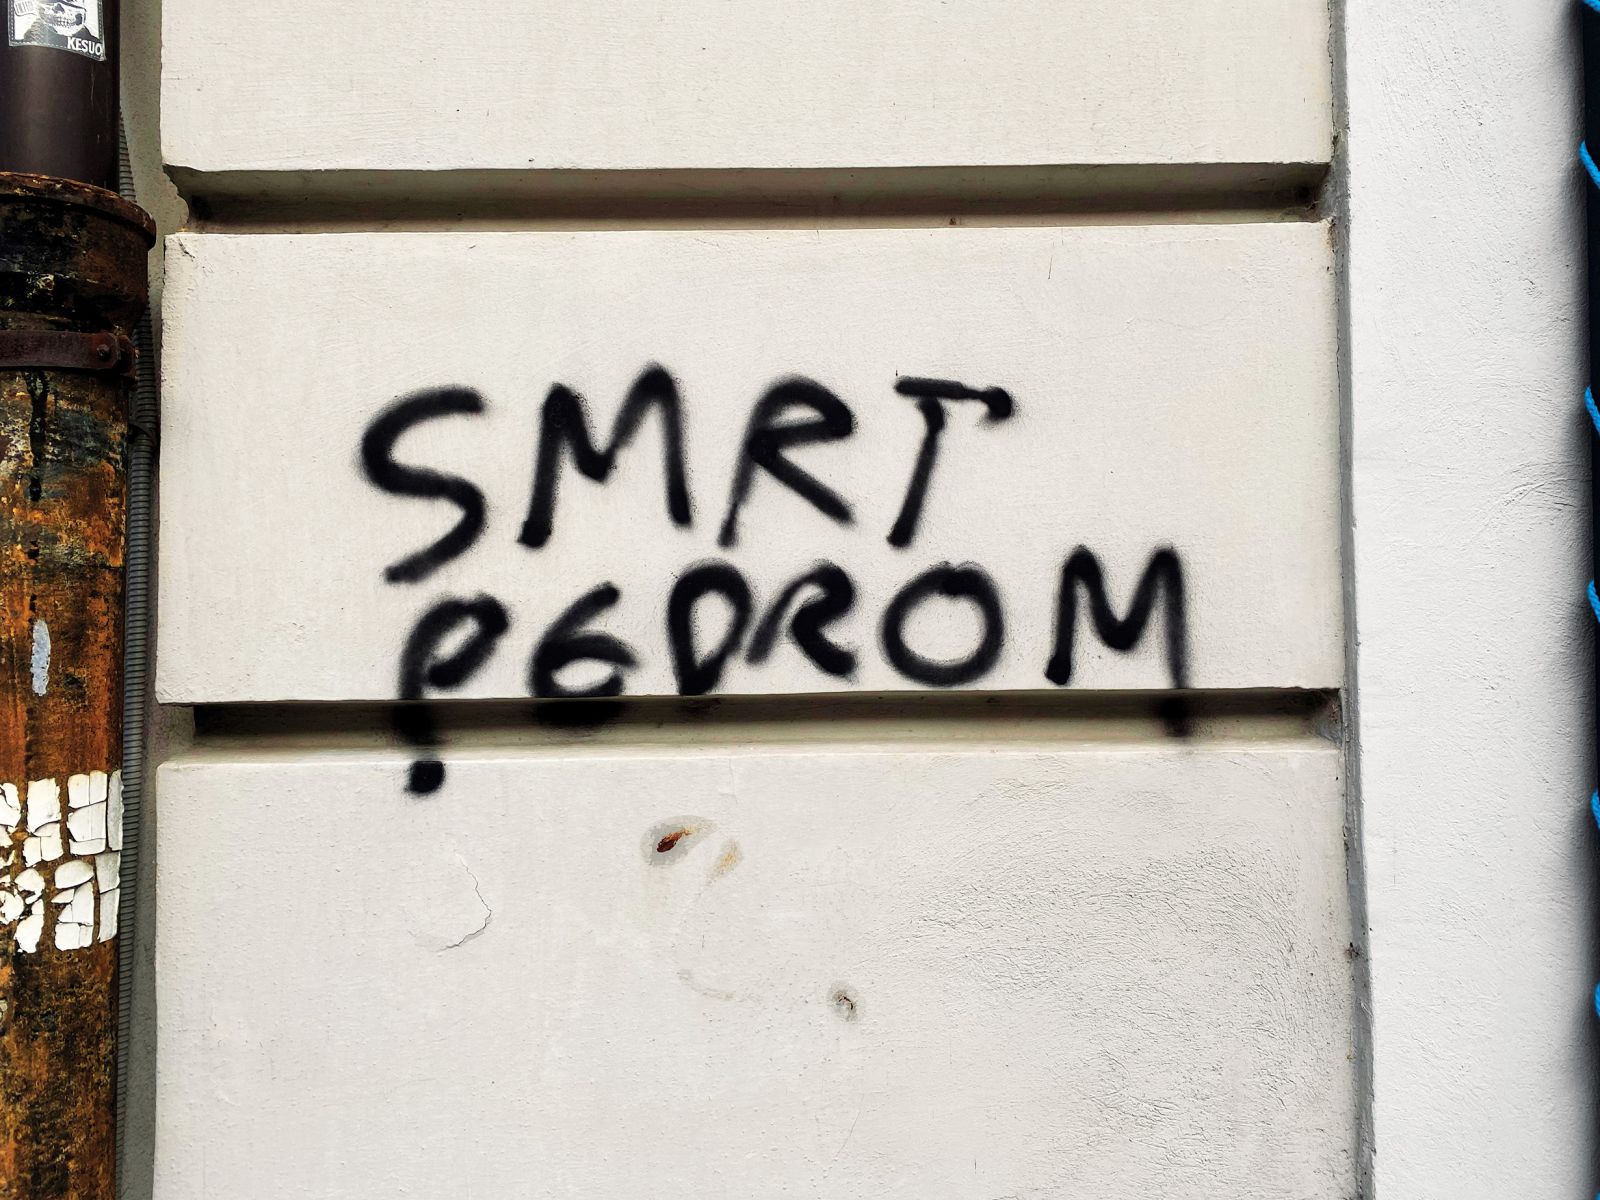 KESUO
SMRT
PEDROM